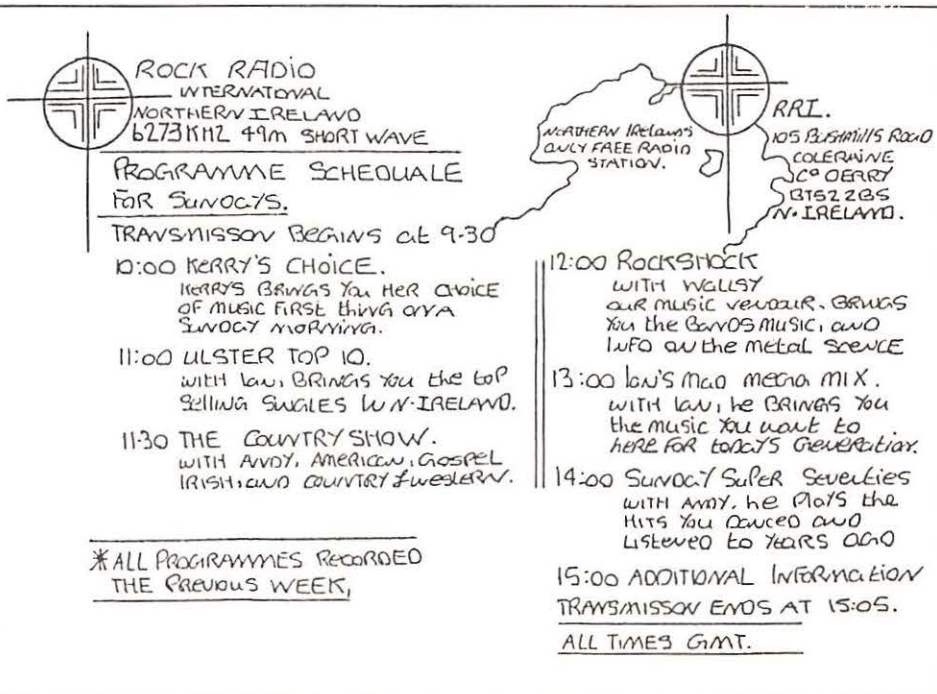 ROCK RADIO
INTERNATIONAL
NORTHERN IRELAND
6273 KHZ 49m SHORT WAVE
PROGRAMME SCHEDUALE
FOR SUNDAYS.
TRANSMISSON BEGINS at 9-30
10:00 KERRY'S CHOICE.
KERRYS BRINGS YOU HER CHOICE
OF MUSIC FIRST thing ON A
SUNDAY MORNING.
11:00 ULSTER TOP 10.
WITH IAN, BRINGS YOU the toP
Selling SINGLES IN N·IRELAND.
11·30 THE COUNTRY SHOW.
WITH ANDY, AMERICAN, GOSPEL
IRISH, AND COUNTRY & WESTERN.
*ALL PROGRAMMES RECORDED
THE PREVIOUS WEEK,
NORTHERN IRELANDS
ONLY FREE RADIO
STATION.
RRI.
105 BUSHMILLS ROAD
COLERAINE
Cº DERRY
BT52 2BS
N·IRELAND.
12:00 ROCKSHOCK
WITH WALLSY
OUR MUSIC BRINGS
YOU the BANDS MUSIC, AND
INFO ON the METAL SCENCE
13:00 IAN'S MAD MEGA MIX.
WITH IAN, he BRINGS YOU
the MUSIC YOU WANT to
HERE FOR todAYS GENERATION.
14:00 SUNDAY SUPER SEVENTIES
WITH ANDY, he PLAYS the
HITS YOU DANCED AND
LISTENED to YEARS AGO
15:00 ADDITIONAL INFORMATION
TRANSMISSON ENDS AT 15:05.
ALL TIMES GMT.